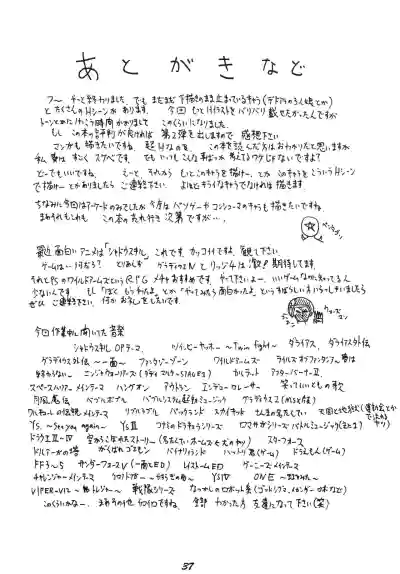 あとがきなど
フ〜 やっと終わりました。でも まだまだ 下描きのまま止まっているキャラ
とたくさんのHシーンがあります。今回もっとHイラストをバリバリ載せたかったんですが
このくらいになりました。
もしこの本の評判が良ければ 第2弾を出しますので 感想下さい
マンガも描きたいですね。超Hなのを。この本を読んだ方はおわかりだと思いますが
私、実は すんごくスケベです。でも いつもこんな事ばっか 考えてるワケじゃないですよ?
どーでもいいですね。えーと、それから もっとこのキャラを描け〜、とか このキャラをこういうHシーン
で描け〜 とかありましたら ご連絡下さい。よほどキライなキャラでなければ描きます。
ちなみに今回はアーケードのみでしたが 今度は パソゲーや コンシューマのキャラも描きたいですね。
まぁそれもこれも この本の売れ行き次第ですが…。
最近面白いアニメは「シャドウスキル」これです。カッコイイですね。観て下さい。
ゲームは…何だろ? とりあえず グラディウスNとリッジ4は激期待してます。
それとPSのワイルドアームズというRPG メチャおすすめです。やって下さいよー。いいゲームなのに知ってる人
少ないんです。もし「ぼく、もうやったよ」とか「やってみたら面白かったよ」というすばらしい方いらっしゃいましたら
ぜひ ご連絡下さい。何か お礼をしたいです。
今回作業中に聞いてた音楽
シャドウスキル OPテーマ、ツインビーヤッホー 〜Twin Fight〜 ダライアス、ダライアス外伝
グラディウス外伝 〜一面〜 ファンタジーゾーン ワイルドアームズ テイルズオブファンタジア〜夢は
終わらない〜 ニンジャウォーリアーズ カルテット アフターバーナーII
スペースハリアー メインテーマ ハングオン アウトラン エンデューローレーサー 笑っていいともの歌
月風魔伝 バブルボブル グラディウス2(MSX版)
ワルキューレの伝説 メインテーマ リブルラブル パックランド スカイキッド
Ys. 〜See you again〜 YsII コナミのドラキュラシリーズ ロマサガシリーズ バトルミュージック
ドラクエII〜IV スターフォース
ドルアーガの塔 がんばれゴエモン バイナリィランド ハットリ君(ゲーム) ドラえもん(ゲーム)
FF3〜5 サンダーフォースV(一面とED) レイストームED グーニーズ メインテーマ
チャレンジャー メインテーマ YsIV
戦隊シリーズ なつかしのロボット系
このくらいかなー。まぁその他 色々ですね。全部 わかった方 友達になって下さい(笑)
37